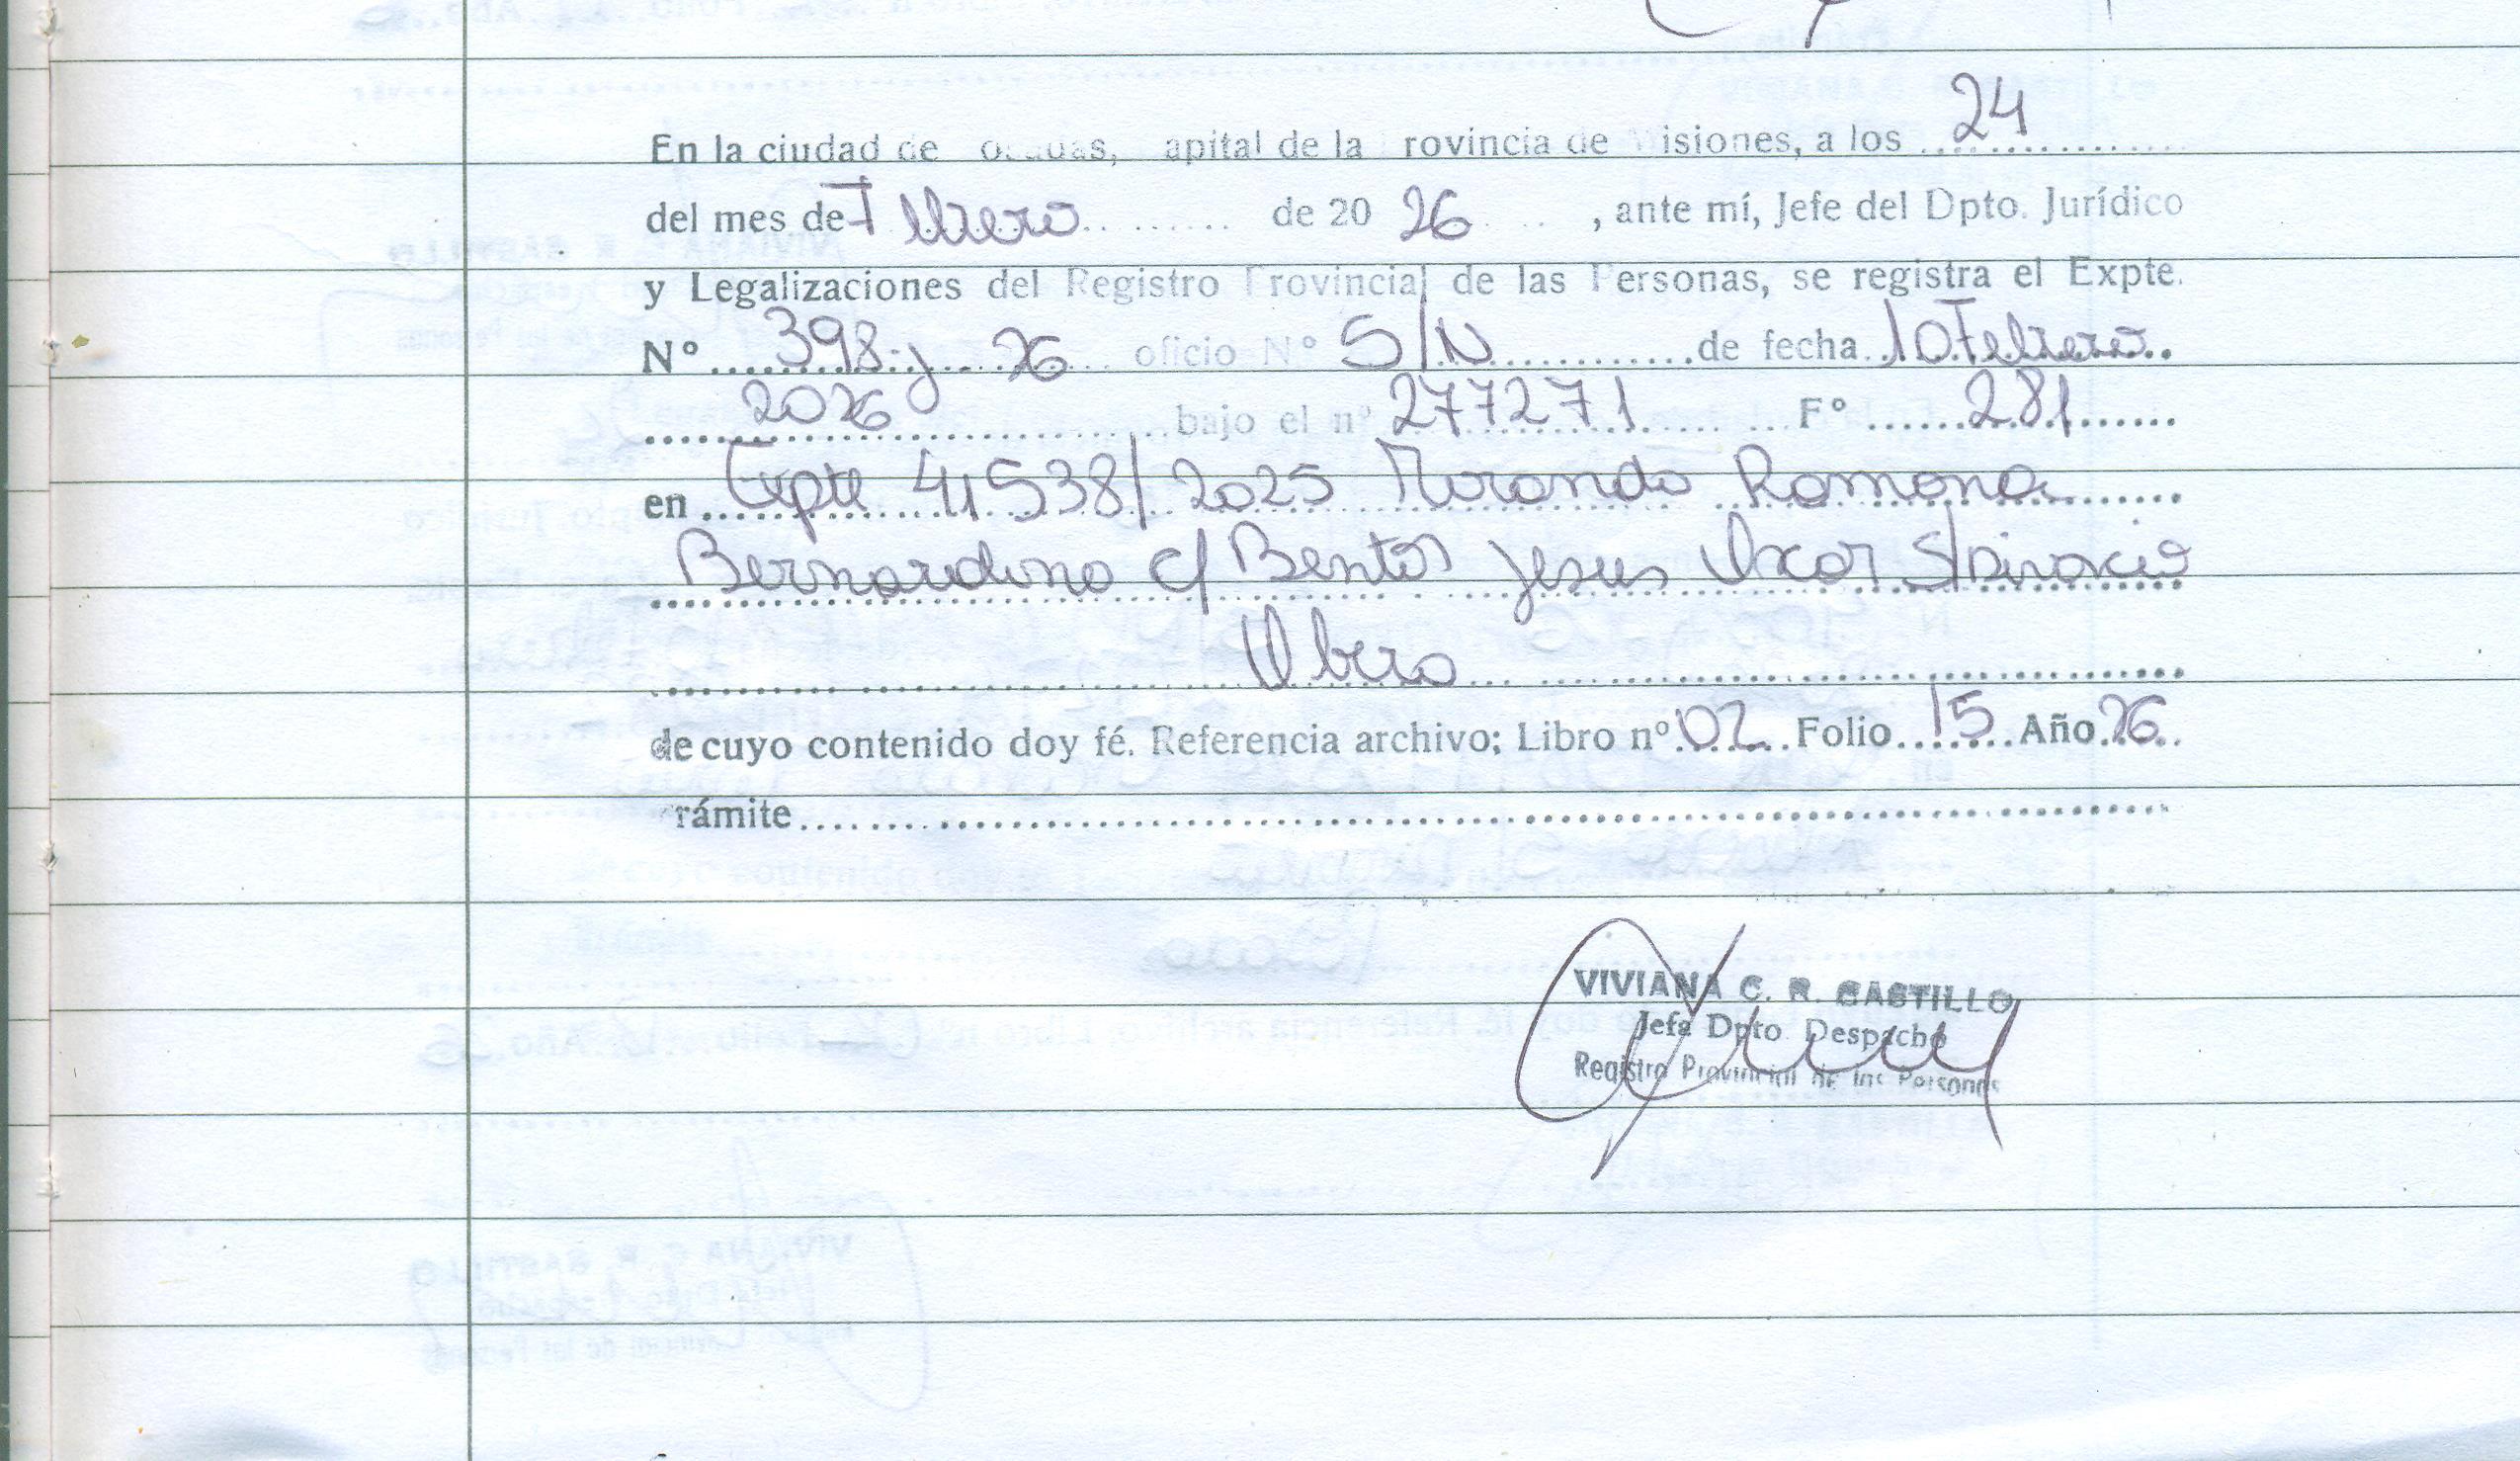 En la ciudad de Posadas, Capital de la Provincia de Misiones, a los 24
del mes de Febrero de 20 26, ante mí, Jefe del Dpto. Jurídico
y Legalizaciones del Registro Provincial de las Personas, se registra el Expte.
N° 398-J-26 oficio N° S/N de fecha 10 Febrero
2026 bajo el n° 277271 F° 281
en Expte 41538/2025 Miranda Ramona
Bernardina c/ Bentos Jesus Oscar S/Divorcio
Obera
de cuyo contenido doy fé. Referencia archivo; Libro n° 02 Folio 15 Año 26
rámite
VIVIANA C. R. CASTILLO
Jefa Dpto. Despacho
Registro Provincial de las Personas